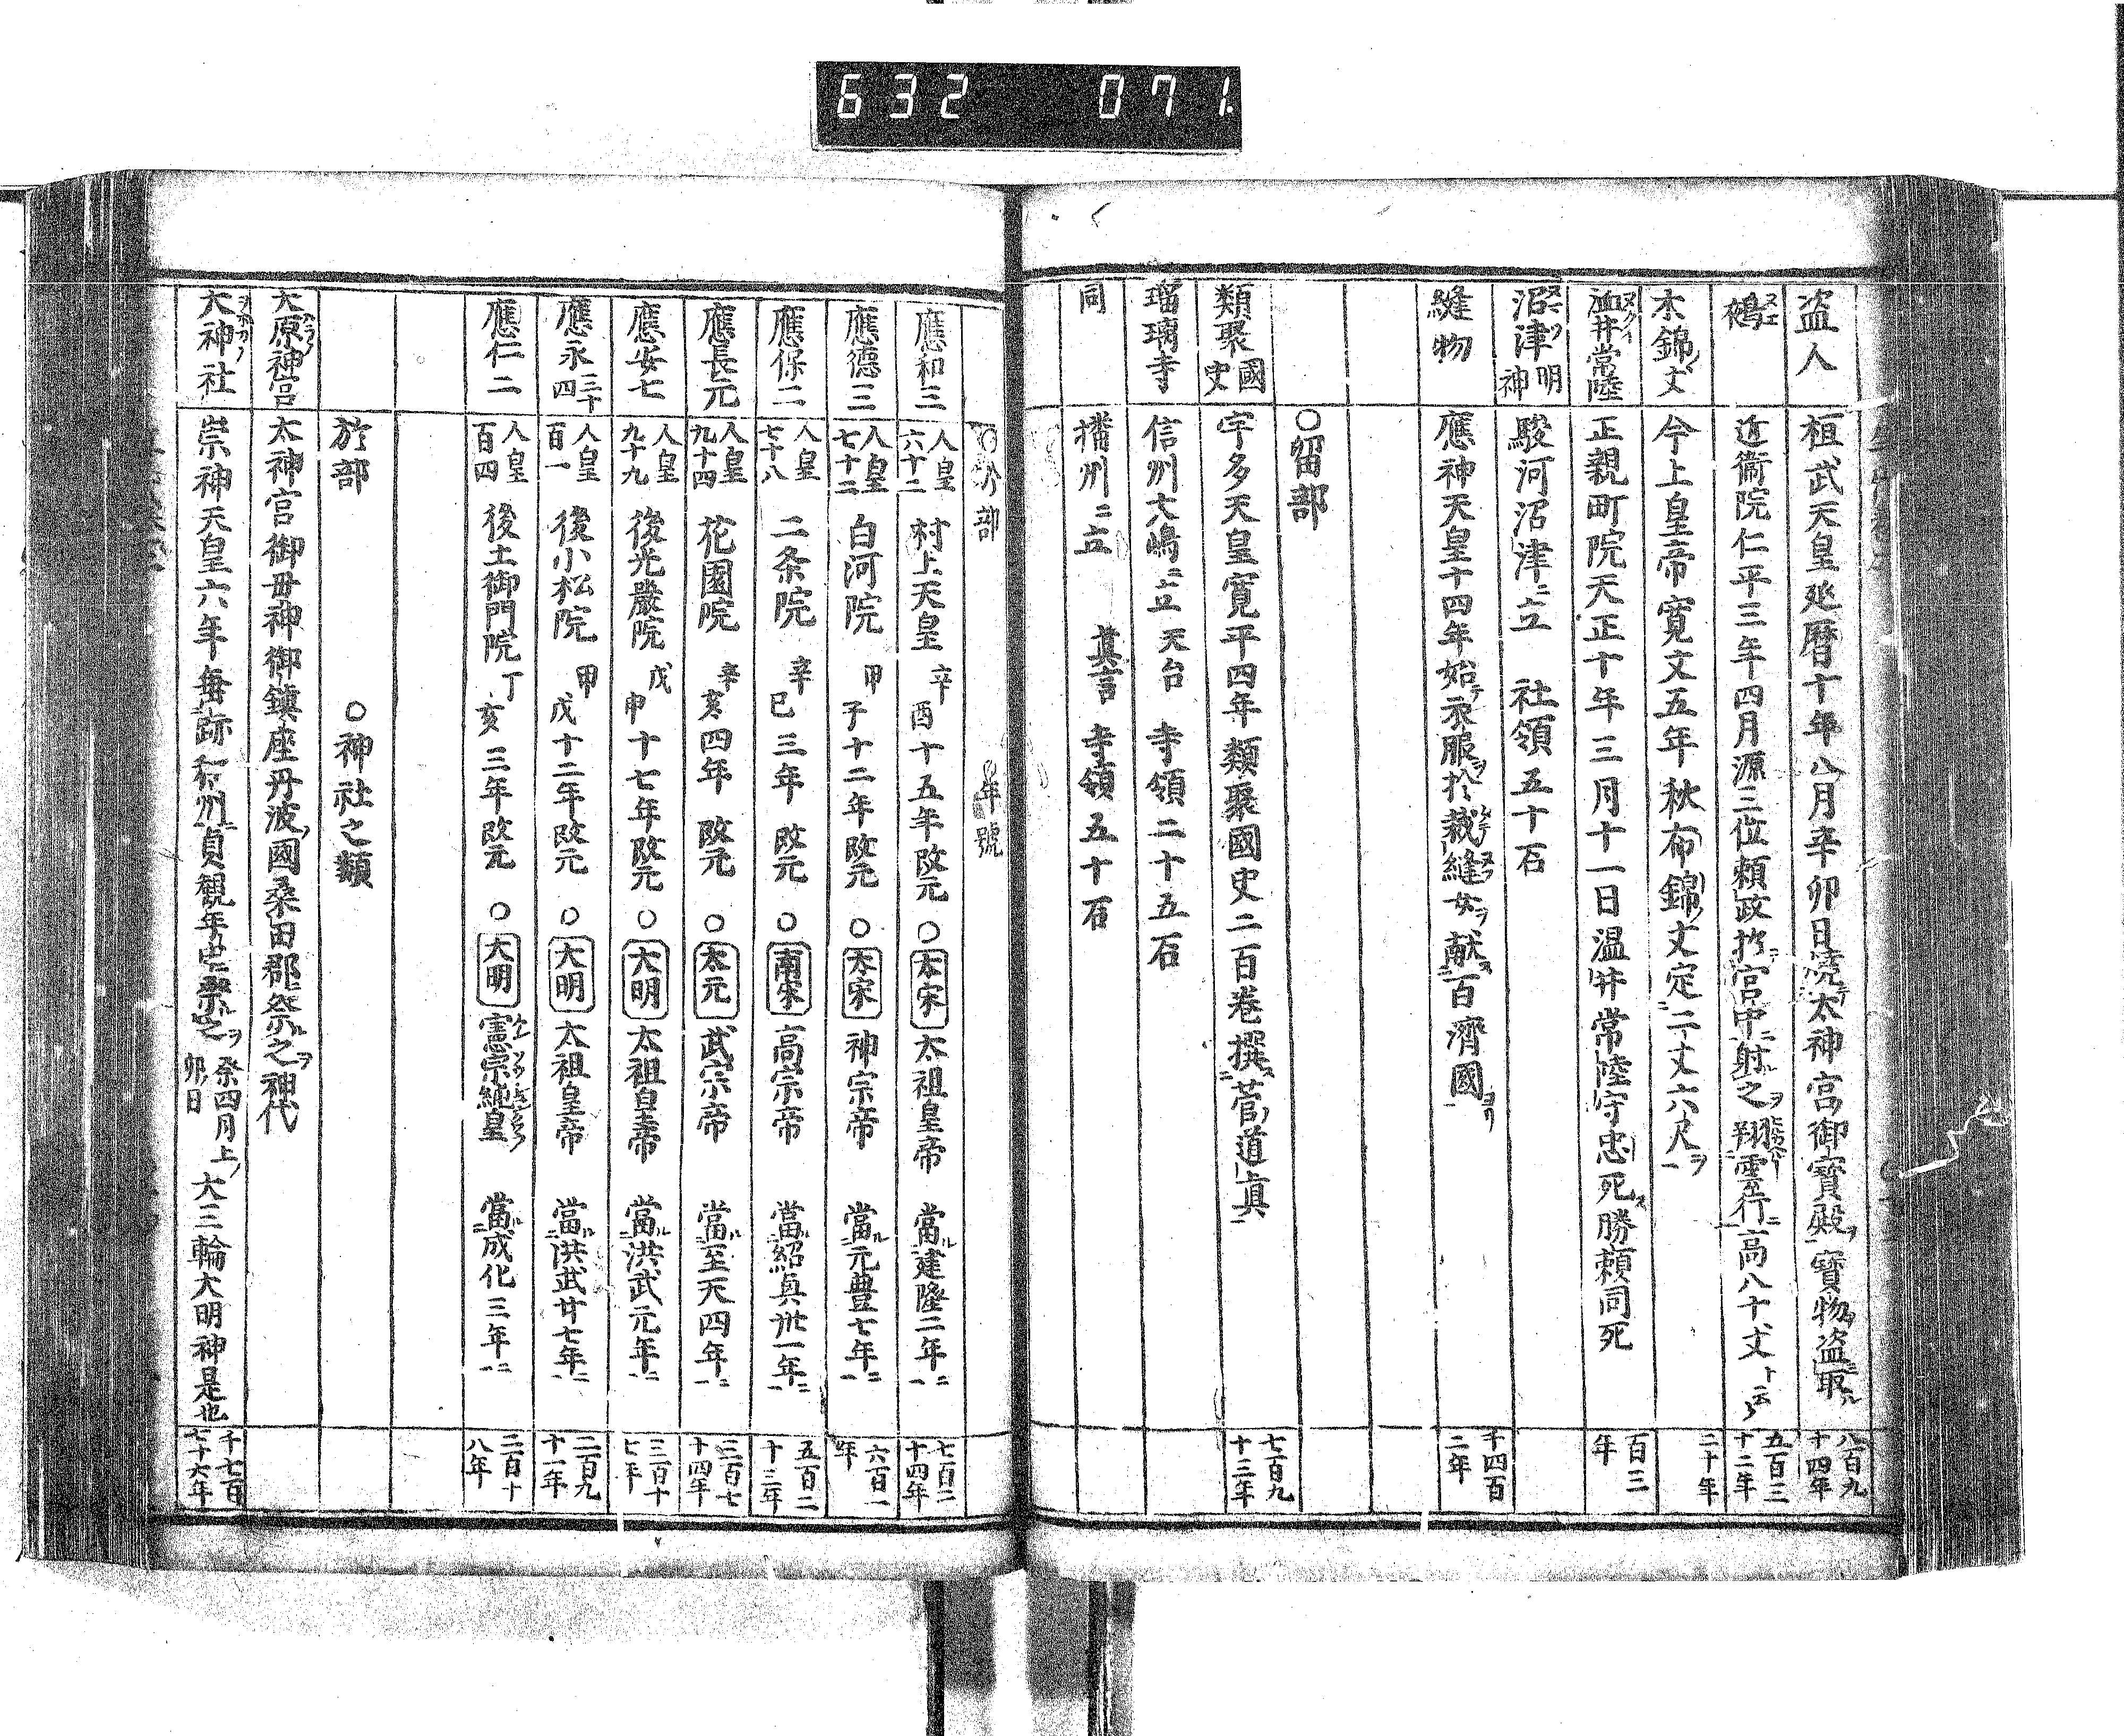 632 071
盗人 桓武天皇延暦十年八月辛卯日燒太神宮御寳殿寳物盗取 八百九十四年
鵺 近衞院仁平三年四月源三位頼政於宮中射之翔雲行高八十丈ト云々 五百三十二年
木錦丈 今上皇帝寛文五年秋布錦丈定二丈六尺ヲ 二十年
温井常陸 正親町院天正十年三月十一日温井常陸守忠死勝頼同死 百三年
沼津明神 駿河沼津ニ立 社領五十石
縫物 應神天皇十四年始衣服於裁縫女ヲ献百濟國ヨリ 千四百二年
○留部
類聚國史 宇多天皇寛平四年類聚國史二百巻撰菅道眞 七百九十三年
瑠璃寺 信州大嶋ニ立 天台 寺領二十五石
同 播州ニ立 眞言 寺領五十石
○於部 ○年號
應和三 人皇六十二 村上天皇 辛酉十五年改元○太宋太祖皇帝 當建隆二年 七百二十四年
應德三 人皇七十二 白河院 甲子十二年改元○太宋神宗帝 當元豊七年 六百一年
應保二 人皇七十八 二条院 辛巳三年改元○南宋高宗帝 當紹眞卅一年 五百二十三年
應長元 人皇九十四 花園院 辛亥四年改元○太元武宗帝 當至天四年 三百七十四年
應安七 人皇九十九 後光嚴院 戊申十七年改元○大明太祖皇帝 當洪武元年 三百十七年
應永三十四 人皇百一 後小松院 甲戌十二年改元○大明太祖皇帝 當洪武廿七年 二百九十一年
應仁二 人皇百四 後土御門院 丁亥三年改元○大明憲宗純皇 當成化三年 二百十八年
於部 ○神社之類
大原神宮 太神宮御毋神御鎮座丹波國桑田郡祭之神代
大神社 崇神天皇六年毎跡和州貞観年中祭之 祭四月上卯日 大三輪大明神是也 千七百七十六年